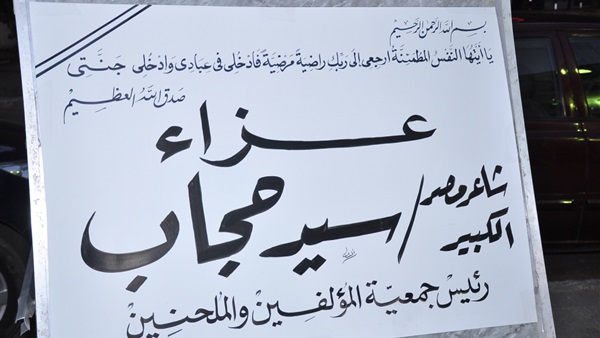 بسم الله الرحمن الرحيم
يا أيتها النفس المطمئنة ارجعى إلى ربك راضية مرضية فادخلى فى عبادى وادخلى جنتى
صدق الله العظيم
عزاء
شاعر مصر الكبير / سيد حجاب
رئيس جمعية المؤلفين والملحنين